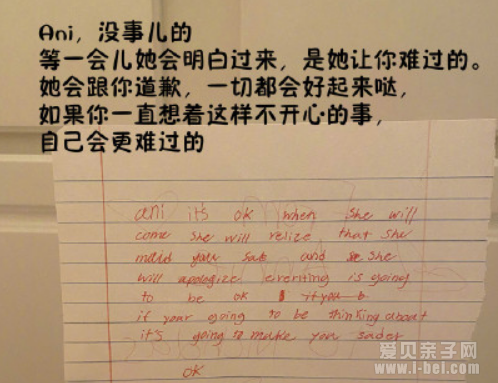 Ani，没事儿的
等一会儿她会明白过来，是她让你难过的。
她会跟你道歉，一切都会好起来哒，
如果你一直想着这样不开心的事，
自己会更难过的
ani it's ok when she will
come she will relize that she
made you sad and she
will apologize everything is going
to be ok if you b
if your going to be thinking about
it's going to make you sader
ok
爱贝亲子网
www.i-bei.com